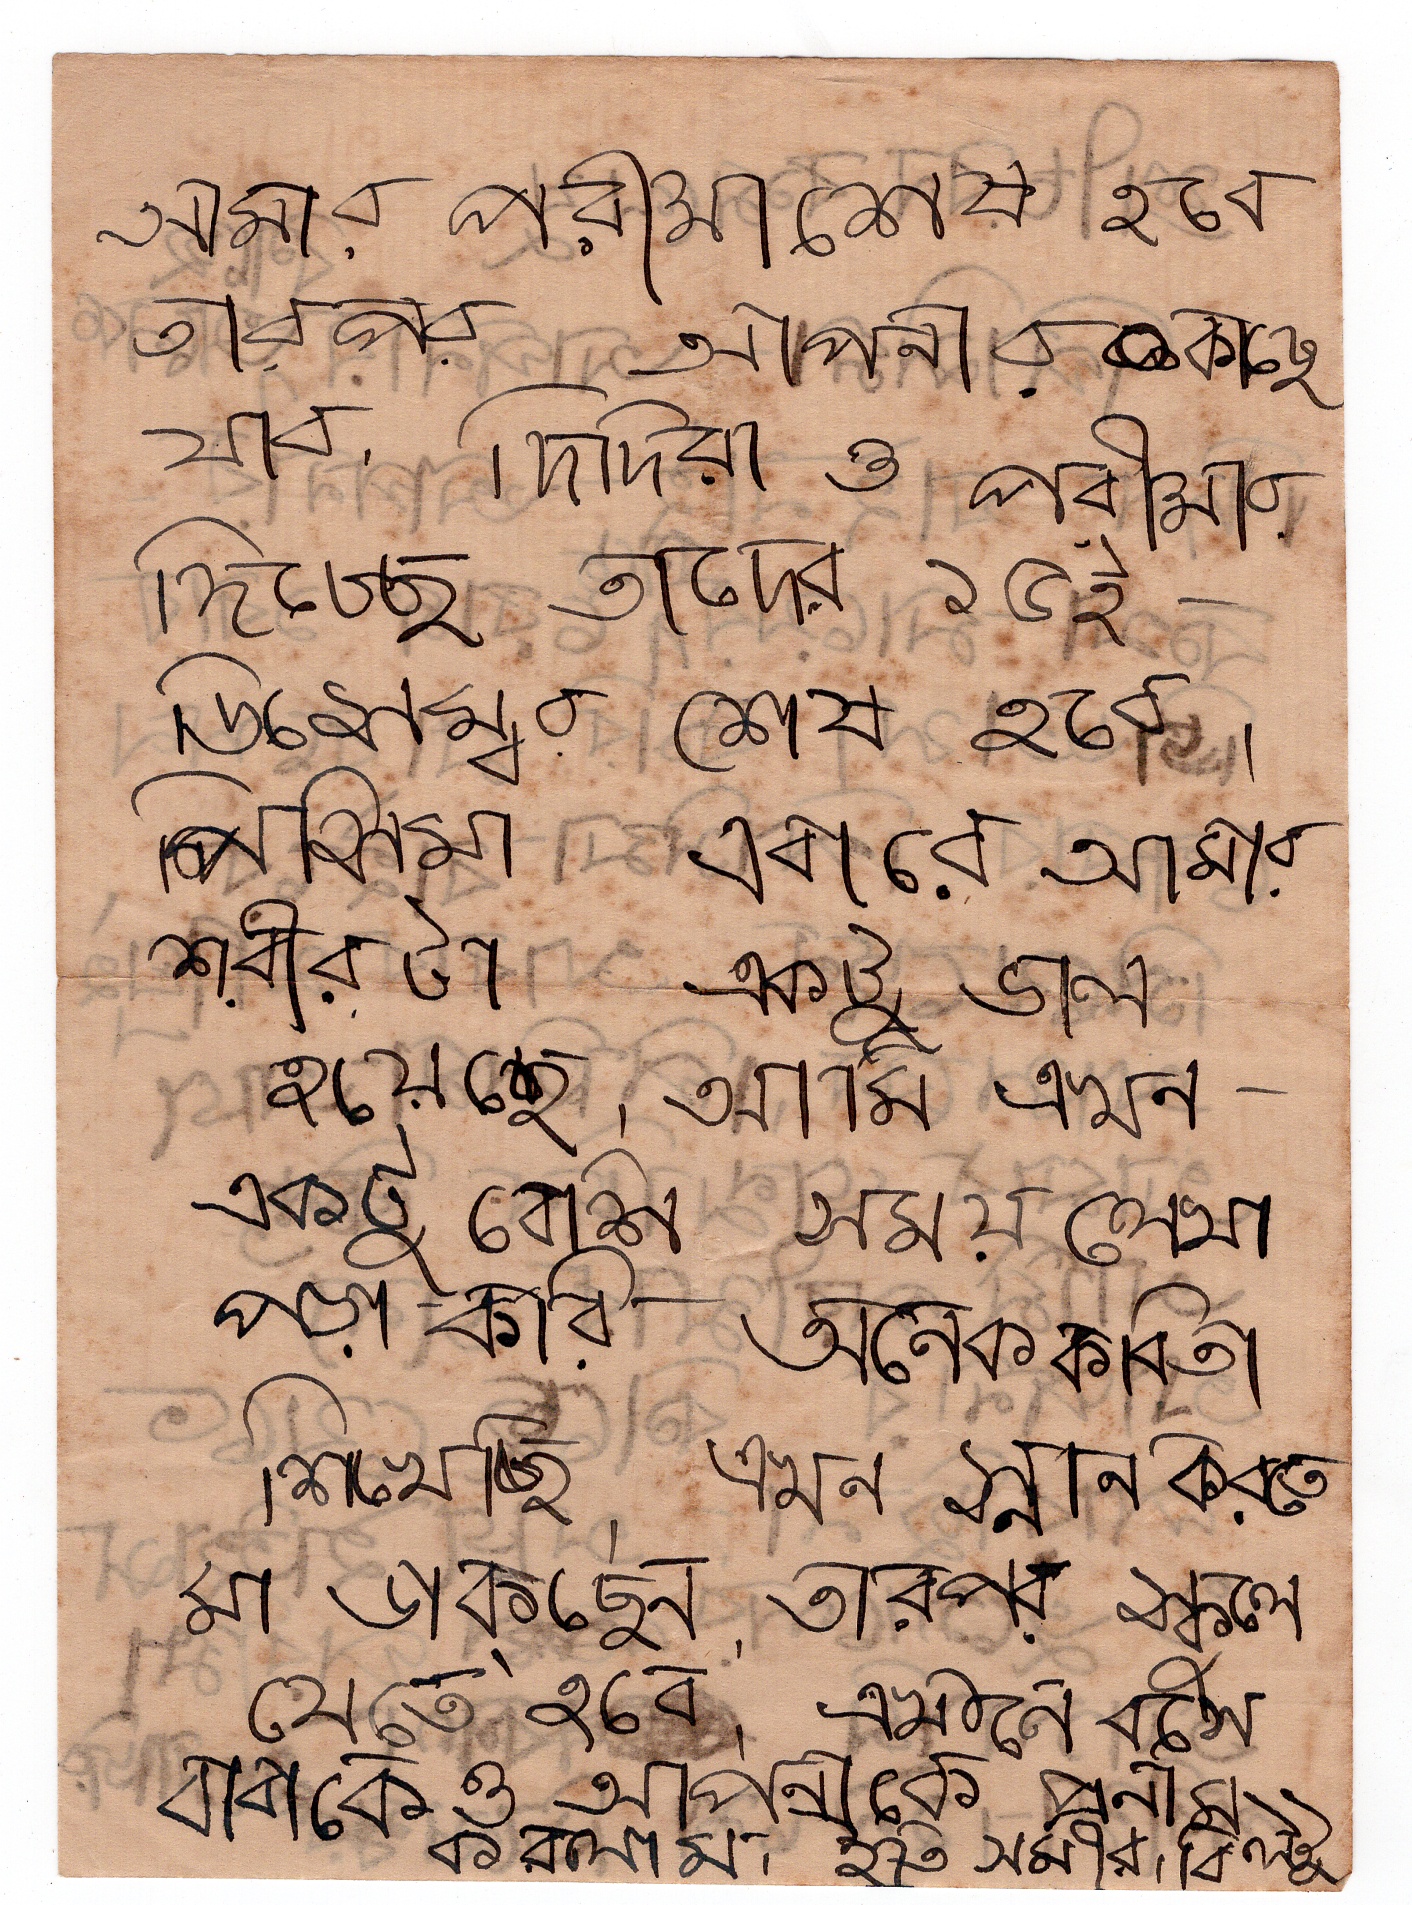 আমার পরীক্ষা শেষ হবে
তারপর আপনার কাছে
যাব। দিদিরা ও পরীক্ষার
দিচ্ছে তাদের ১৫ই -
ডিসেম্বর শেষ হবে।
পিসিমা এবারে আমার
শরীরটা একটু ভাল
হয়েছে। আমি এখন -
একটু বেশি সময় লেখা
পড়া করি - অনেক কবিতা
শিখেছি। এখন স্নান করতে
মা ডাকছেন, তারপর স্কুলে
যেতে হবে। এখানে বসে
বাবাকে ও আপনাকে প্রনাম
করলাম। ইতি সমীর। বিল্টু